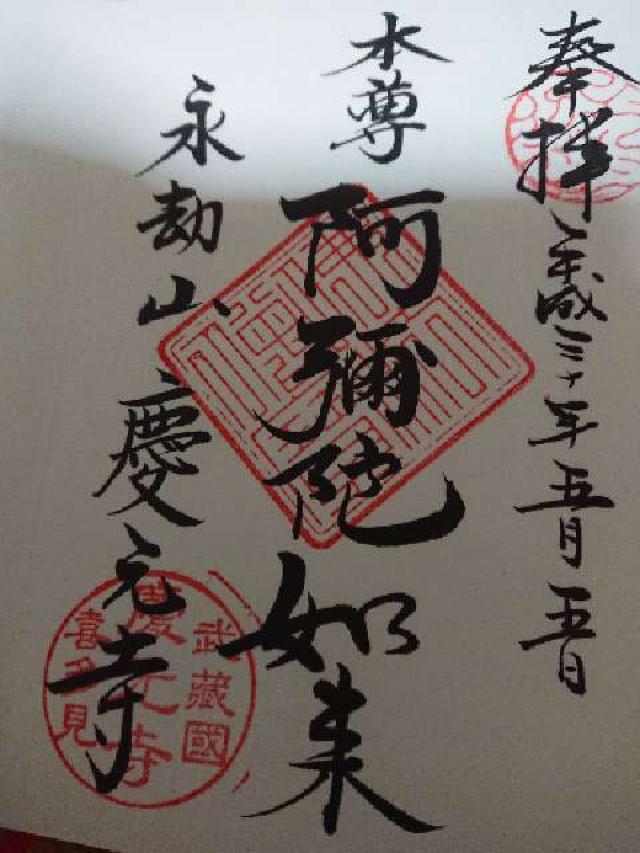 奉拝
平成三十年五月五日
本尊
阿彌陀如来
永劫山
慶元寺
武藏國
慶元寺
喜多見